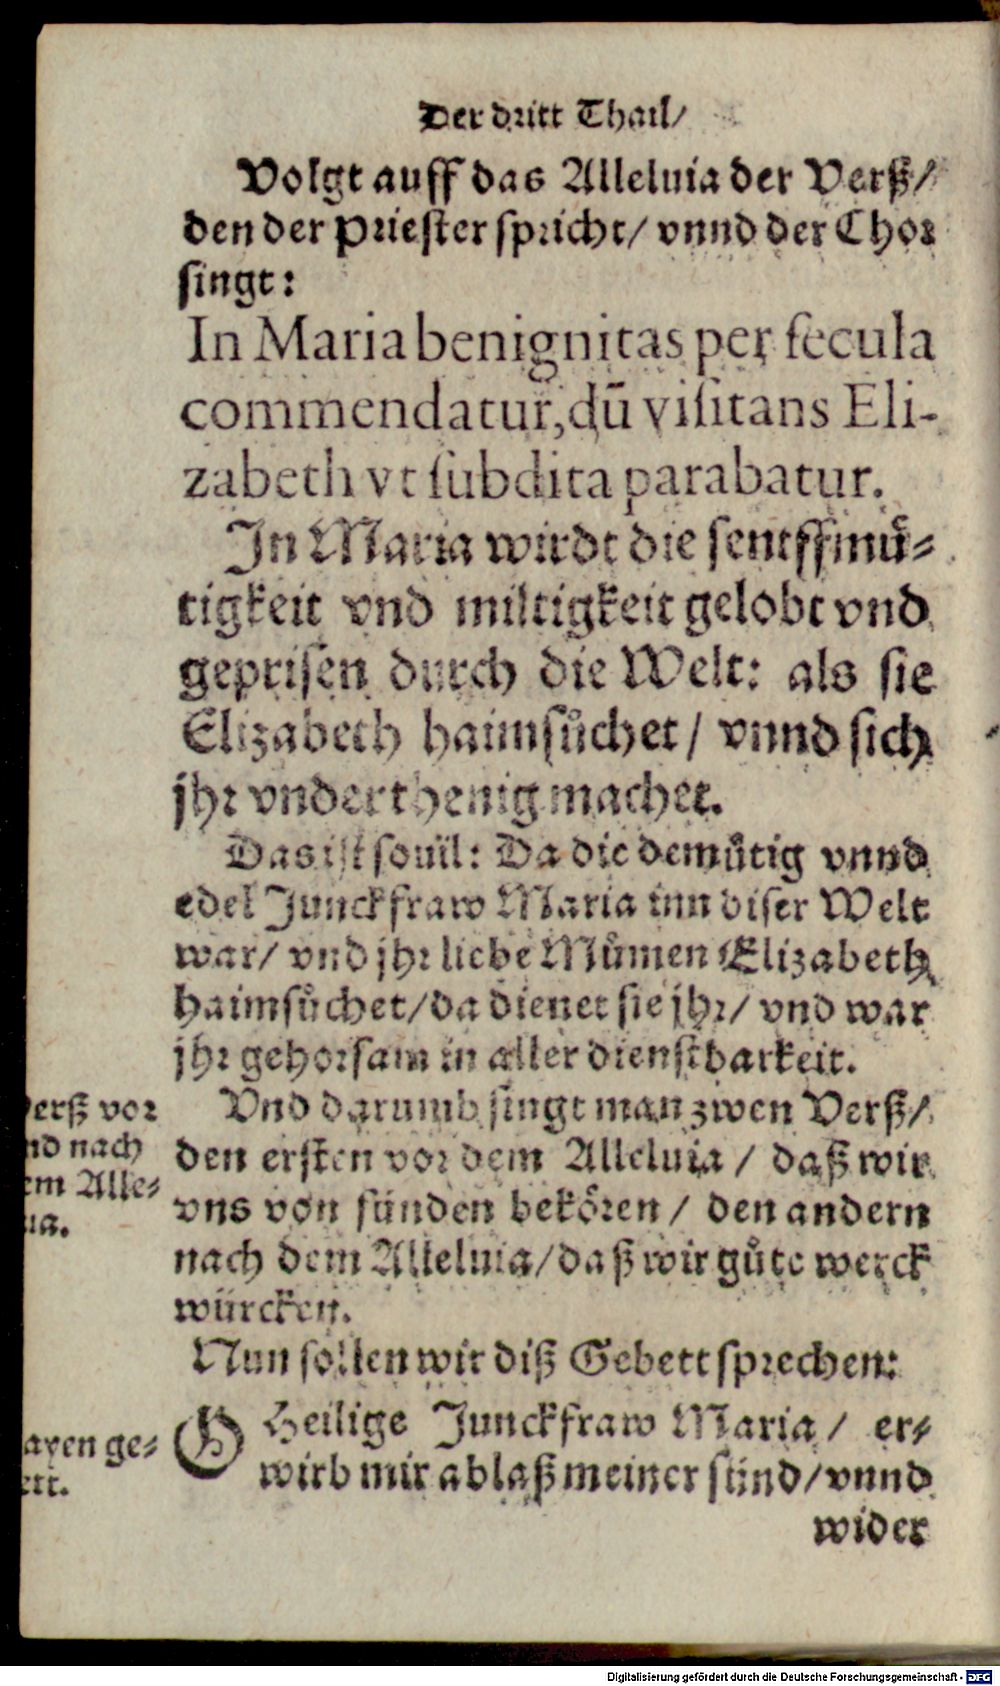 Der dritt Thail/
Volgt auff das Alleluia der Verß/
den der Priester spricht/ vnnd der Chor
singt:
In Maria benignitas per ſecula
commendatur, dū viſitans Eli-
zabeth vt ſubdita parabatur.
In Maria wirdt die senfftmuͤ-
tigkeit vnd miltigkeit gelobt vnd
geprisen durch die Welt: als sie
Elizabeth haimsuͦchet/ vnnd sich
jhr vnderthenig machet.
Das ist souil: Da die demuͤtig vnnd
edel Junckfraw Maria inn diser Welt
war/ vnd jhr liebe Muͦmen Elizabeth
haimsuͦchet/ da dienet sie jhr/ vnd war
jhr gehorsam in aller dienstbarkeit.
Vnd darumb singt man zwen Verß/
den ersten vor dem Alleluia / daß wir
vns von sünden bekoͤren/ den andern
nach dem Alleluia/ daß wir guͦte werck
würcken.
erß vor
nd nach
em Alle-
uia.
Nun sollen wir diß Gebett sprechen:
O Heilige Junckfraw Maria/ er-
wirb mir ablaß meiner sünd/ vnnd
ayen ge-
ett.
wider
Digitalisierung gefördert durch die Deutsche Forschungsgemeinschaft - DFG